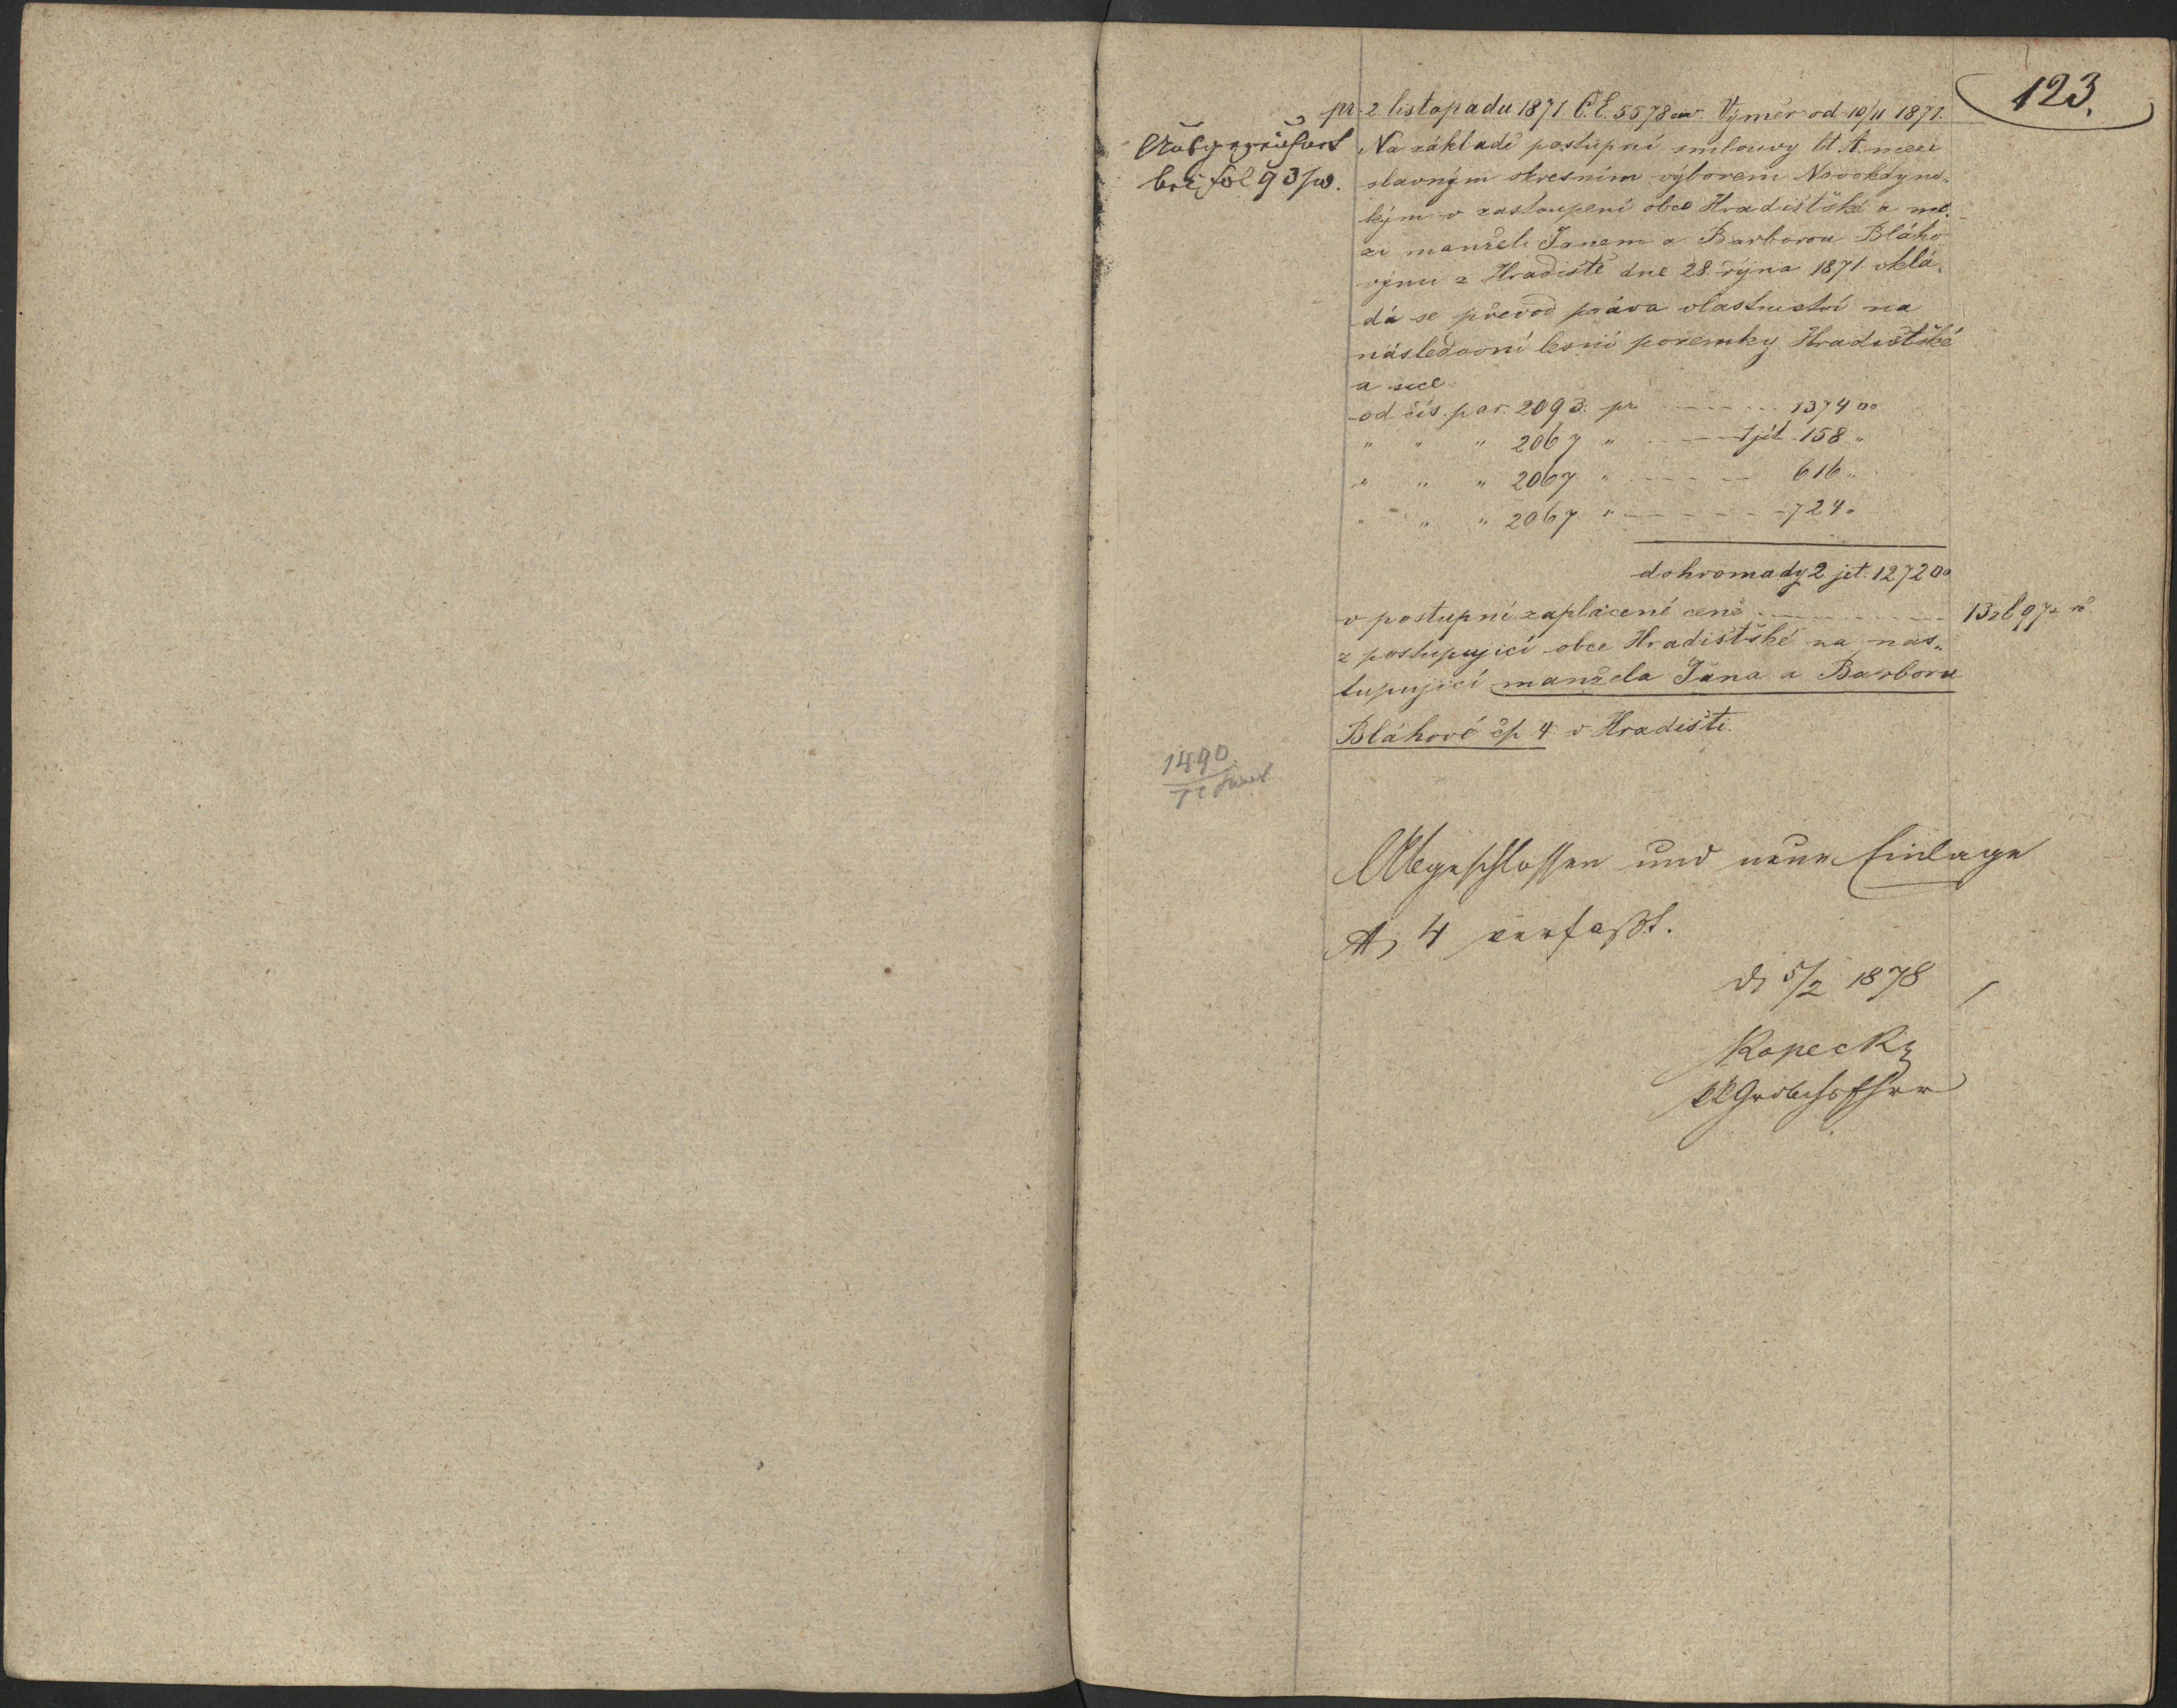 123.
pr. 2 listopadu 1871 Č.E. 5578 civ. Výměr od 10/11 1871.
Na základě postupní smlouvy lit. A. mezi
slavným okresním výborem Novokdyns„
kým v zastoupení obce Hradištské a me„
zi manželi Janem a Barborou Bláho„
vými z Hradiště dne 28. října 1871 vklá„
dá se převod práva vlastnictví na
následovní lesní pozemky Hradištské
a sice
od čís. par. 2093. pr ------ 1374 □°
" " " 2067 " --- 1 jit. 158 "
" " " 2067 " ----- 616 "
" " " 2067 " ------ 724 "
dohromady 2 jit. 1272 □°
v postupní zaplacené ceně ------ 13 zl 97 x rč.
z postupující obce Hradištské na nas„
tupující manžela Jana a Barboru
Bláhové čp. 4. v Hradišti.
Ausgezeichnet
bei fol 93/w.
1490
Abgeschlossen und neue Einlage
A, 4 verfaßt.
d. 5/2 1878
Kopecky
kk Grdbchsfhrer